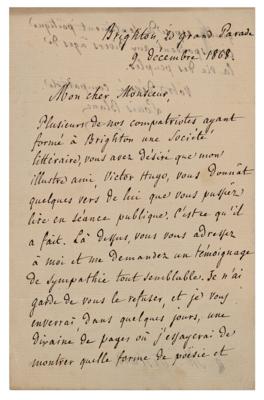 Brighton 23 grand Parade
9 decembre 1868.
Mon cher Monsieur,
Plusieurs de nos compatriotes ayant
formé à Brighton une Société
littéraire, vous avez désiré que mon
illustre ami, Victor Hugo, vous donnât
quelques vers de lui que vous pussiez
lire en séance publique. C'est ce qu'il
a fait. Là dessus, vous vous adressez
à moi et me demandez un témoignage
de sympathie tout semblable. Je n'ai
garde de vous le refuser, et je vous
enverrai, dans quelques jours, une
dizaine de pages où j'essayerai de
montrer quelle forme de poésie et